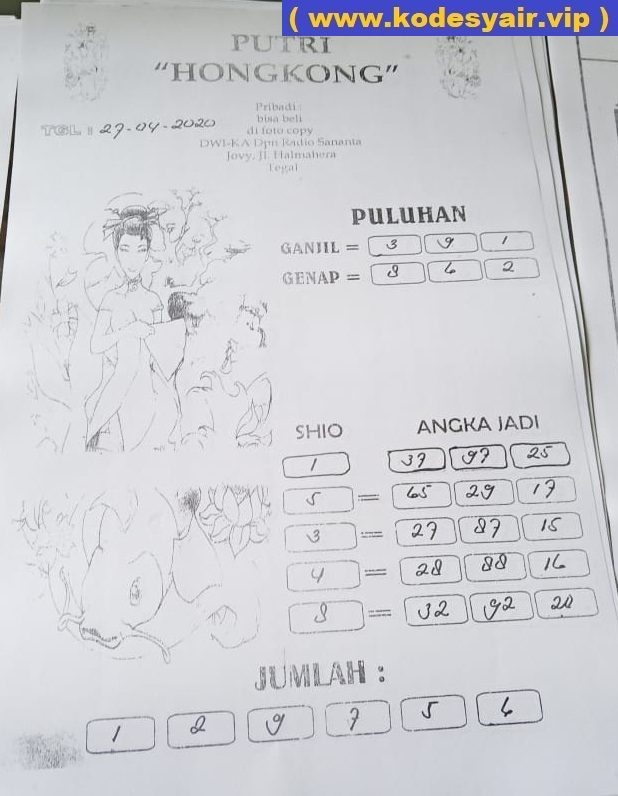 ( www.kodesyair.vip )
PUTRI
"HONGKONG"
Pribadi :
bisa beli
di foto copy
DWI-KA Dpn Radio Sananta
Jovy, Jl. Halmahera
Tegal
TGL : 27-04-2020
PULUHAN
GANJIL = 3 9 1
GENAP = 8 6 2
SHIO ANGKA JADI
1 37 97 25
5 = 65 29 17
3 = 27 87 15
4 = 28 88 16
8 = 32 92 20
JUMLAH :
1 2 9 7 5 6